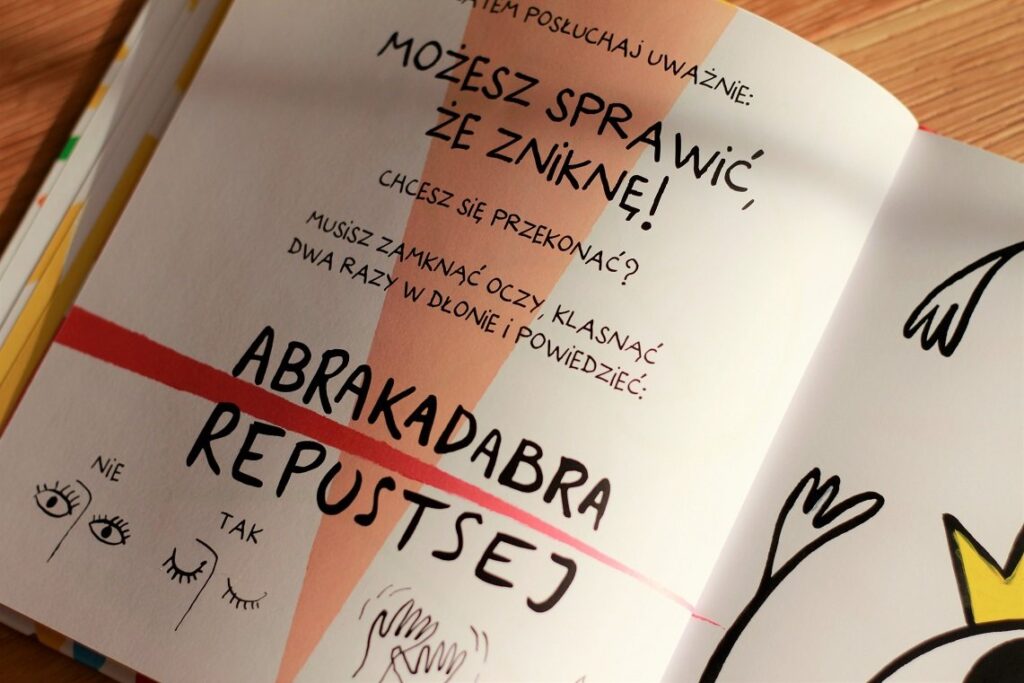 POSŁUCHAJ UWAŻNIE:
MOŻESZ SPRAWIĆ,
ŻE ZNIKNĘ!
CHCESZ SIĘ PRZEKONAĆ?
MUSISZ ZAMKNĄĆ OCZY, KLASNĄĆ
DWA RAZY W DŁONIE I POWIEDZIEĆ:
ABRAKADABRA
REPUSTSEJ
NIE
TAK